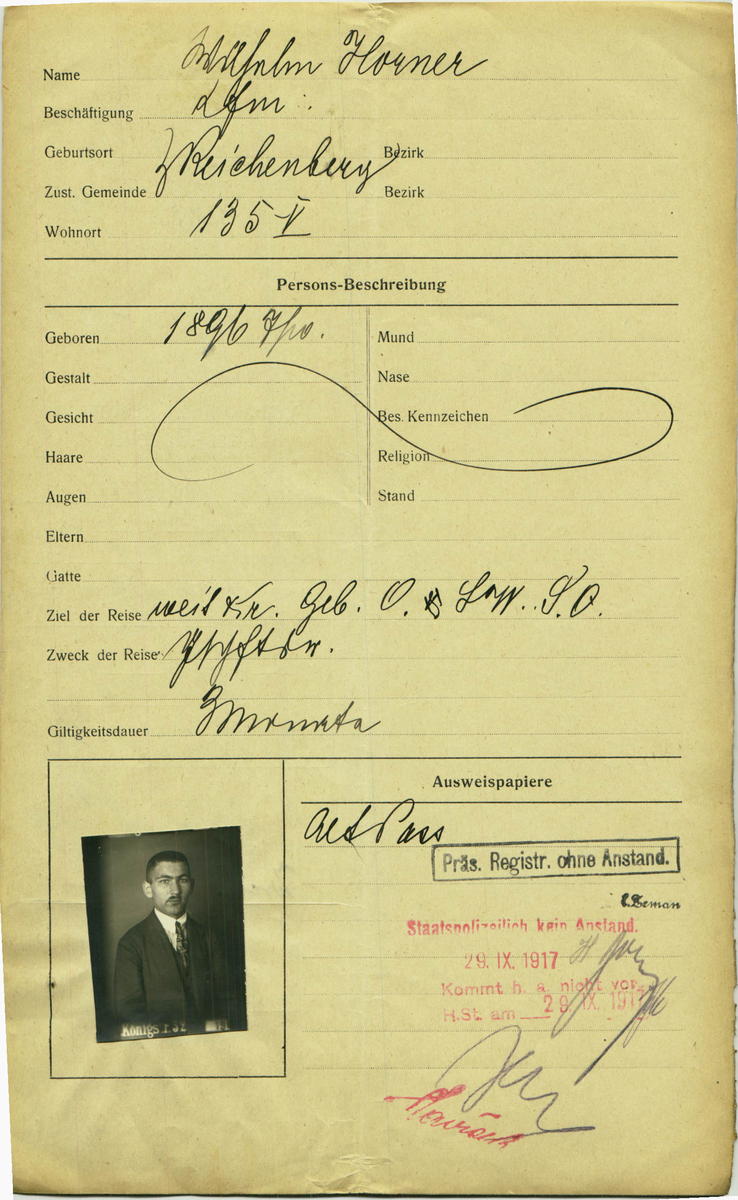 Name Wilhelm Horner
Beschäftigung Kfm.
Geburtsort Bezirk
Reichenberg
Zust. Gemeinde Bezirk
Wohnort 135 V
Persons-Beschreibung
Geboren 1896 7/10. Mund
Gestalt Nase
Gesicht Bes. Kennzeichen
Haare Religion
Augen Stand
Eltern
Gatte
Ziel der Reise Geb. O.
Zweck der Reise
Giltigkeitsdauer 3 Monate
Ausweispapiere
Alt Pass
Präs. Registr. ohne Anstand.
Zeman
Staatspolizeilich kein Anstand.
29. IX. 1917
Kommt h. a. nicht vor.
H.St. am 29. IX. 1917
Königs